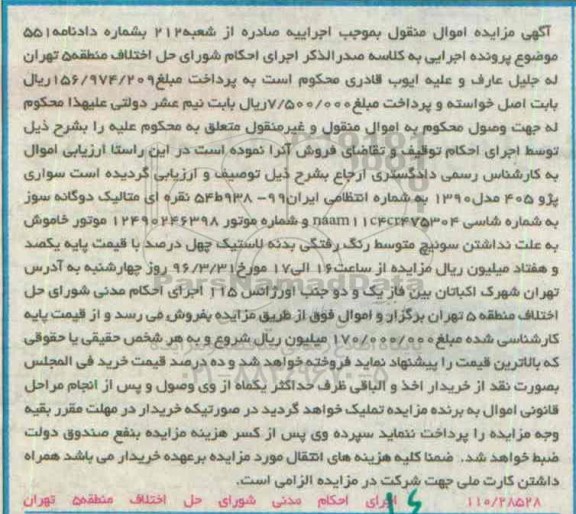 آگهی مزایده اموال منقول بموجب اجراییه صادره از شعبه۲۱۲ بشماره دادنامه۵۵۱
موضوع پرونده اجرایی به کلاسه صدرالذکر اجرای احکام شورای حل اختلاف منطقه۵ تهران
له جلیل عارف و علیه ایوب قادری محکوم است به پرداخت مبلغ۱۵۶/۹۷۴/۲۰۹ریال
بابت اصل خواسته و پرداخت مبلغ۷/۵۰۰/۰۰۰ریال بابت نیم عشر دولتی علیهذا محکوم
له جهت وصول محکوم به اموال منقول و غیرمنقول متعلق به محکوم علیه را بشرح ذیل
توسط اجرای احکام توقیف و تقاضای فروش آنرا نموده است در این راستا ارزیابی اموال
به کارشناس رسمی دادگستری ارجاع بشرح ذیل توصیف و ارزیابی گردیده است سواری
پژو ۴۰۵ مدل۱۳۹۰ به شماره انتظامی ایران۹۹- ۹۳۸ط۵۴ نقره ای متالیک دوگانه سوز
به شماره شاسی naam۱۱c۴cr۴۷۵۳۰۴ و شماره موتور ۱۲۴۹۰۲۴۶۳۹۸ موتور خاموش
به علت نداشتن سونیچ متوسط رنگ رفتگی بدنه لاستیک چهل درصد با قیمت پایه یکصد
و هفتاد میلیون ریال مزایده از ساعت۱۶ الی۱۷ مورخ۹۶/۳/۳۱ روز چهارشنبه به آدرس
تهران شهرک اکباتان بین فاز یک و دو جنب اورژانس ۱۱۵ اجرای احکام مدنی شورای حل
اختلاف منطقه ۵ تهران برگزار و اموال فوق از طریق مزایده بفروش می رسد و از قیمت پایه
کارشناسی شده مبلغ۱۷۰/۰۰۰/۰۰۰ میلیون ریال شروع و به هر شخص حقیقی یا حقوقی
که بالاترین قیمت را پیشنهاد نماید فروخته خواهد شد و ده درصد قیمت خرید فی المجلس
بصورت نقد از خریدار اخذ و الباقی ظرف حداکثر یکماه از وی وصول و پس از انجام مراحل
قانونی اموال به برنده مزایده تملیک خواهد گردید در صورتیکه خریدار در مهلت مقرر بقیه
وجه مزایده را پرداخت ننماید سپرده وی پس از کسر هزینه مزایده بنفع صندوق دولت
ضبط خواهد شد. ضمنا کلیه هزینه های انتقال مورد مزایده برعهده خریدار می باشد همراه
داشتن کارت ملی جهت شرکت در مزایده الزامی است.
۱۱۰/۲۸۵۲۸ اجرای احکام مدنی شورای حل اختلاف منطقه۵ تهران
ParsNamadData